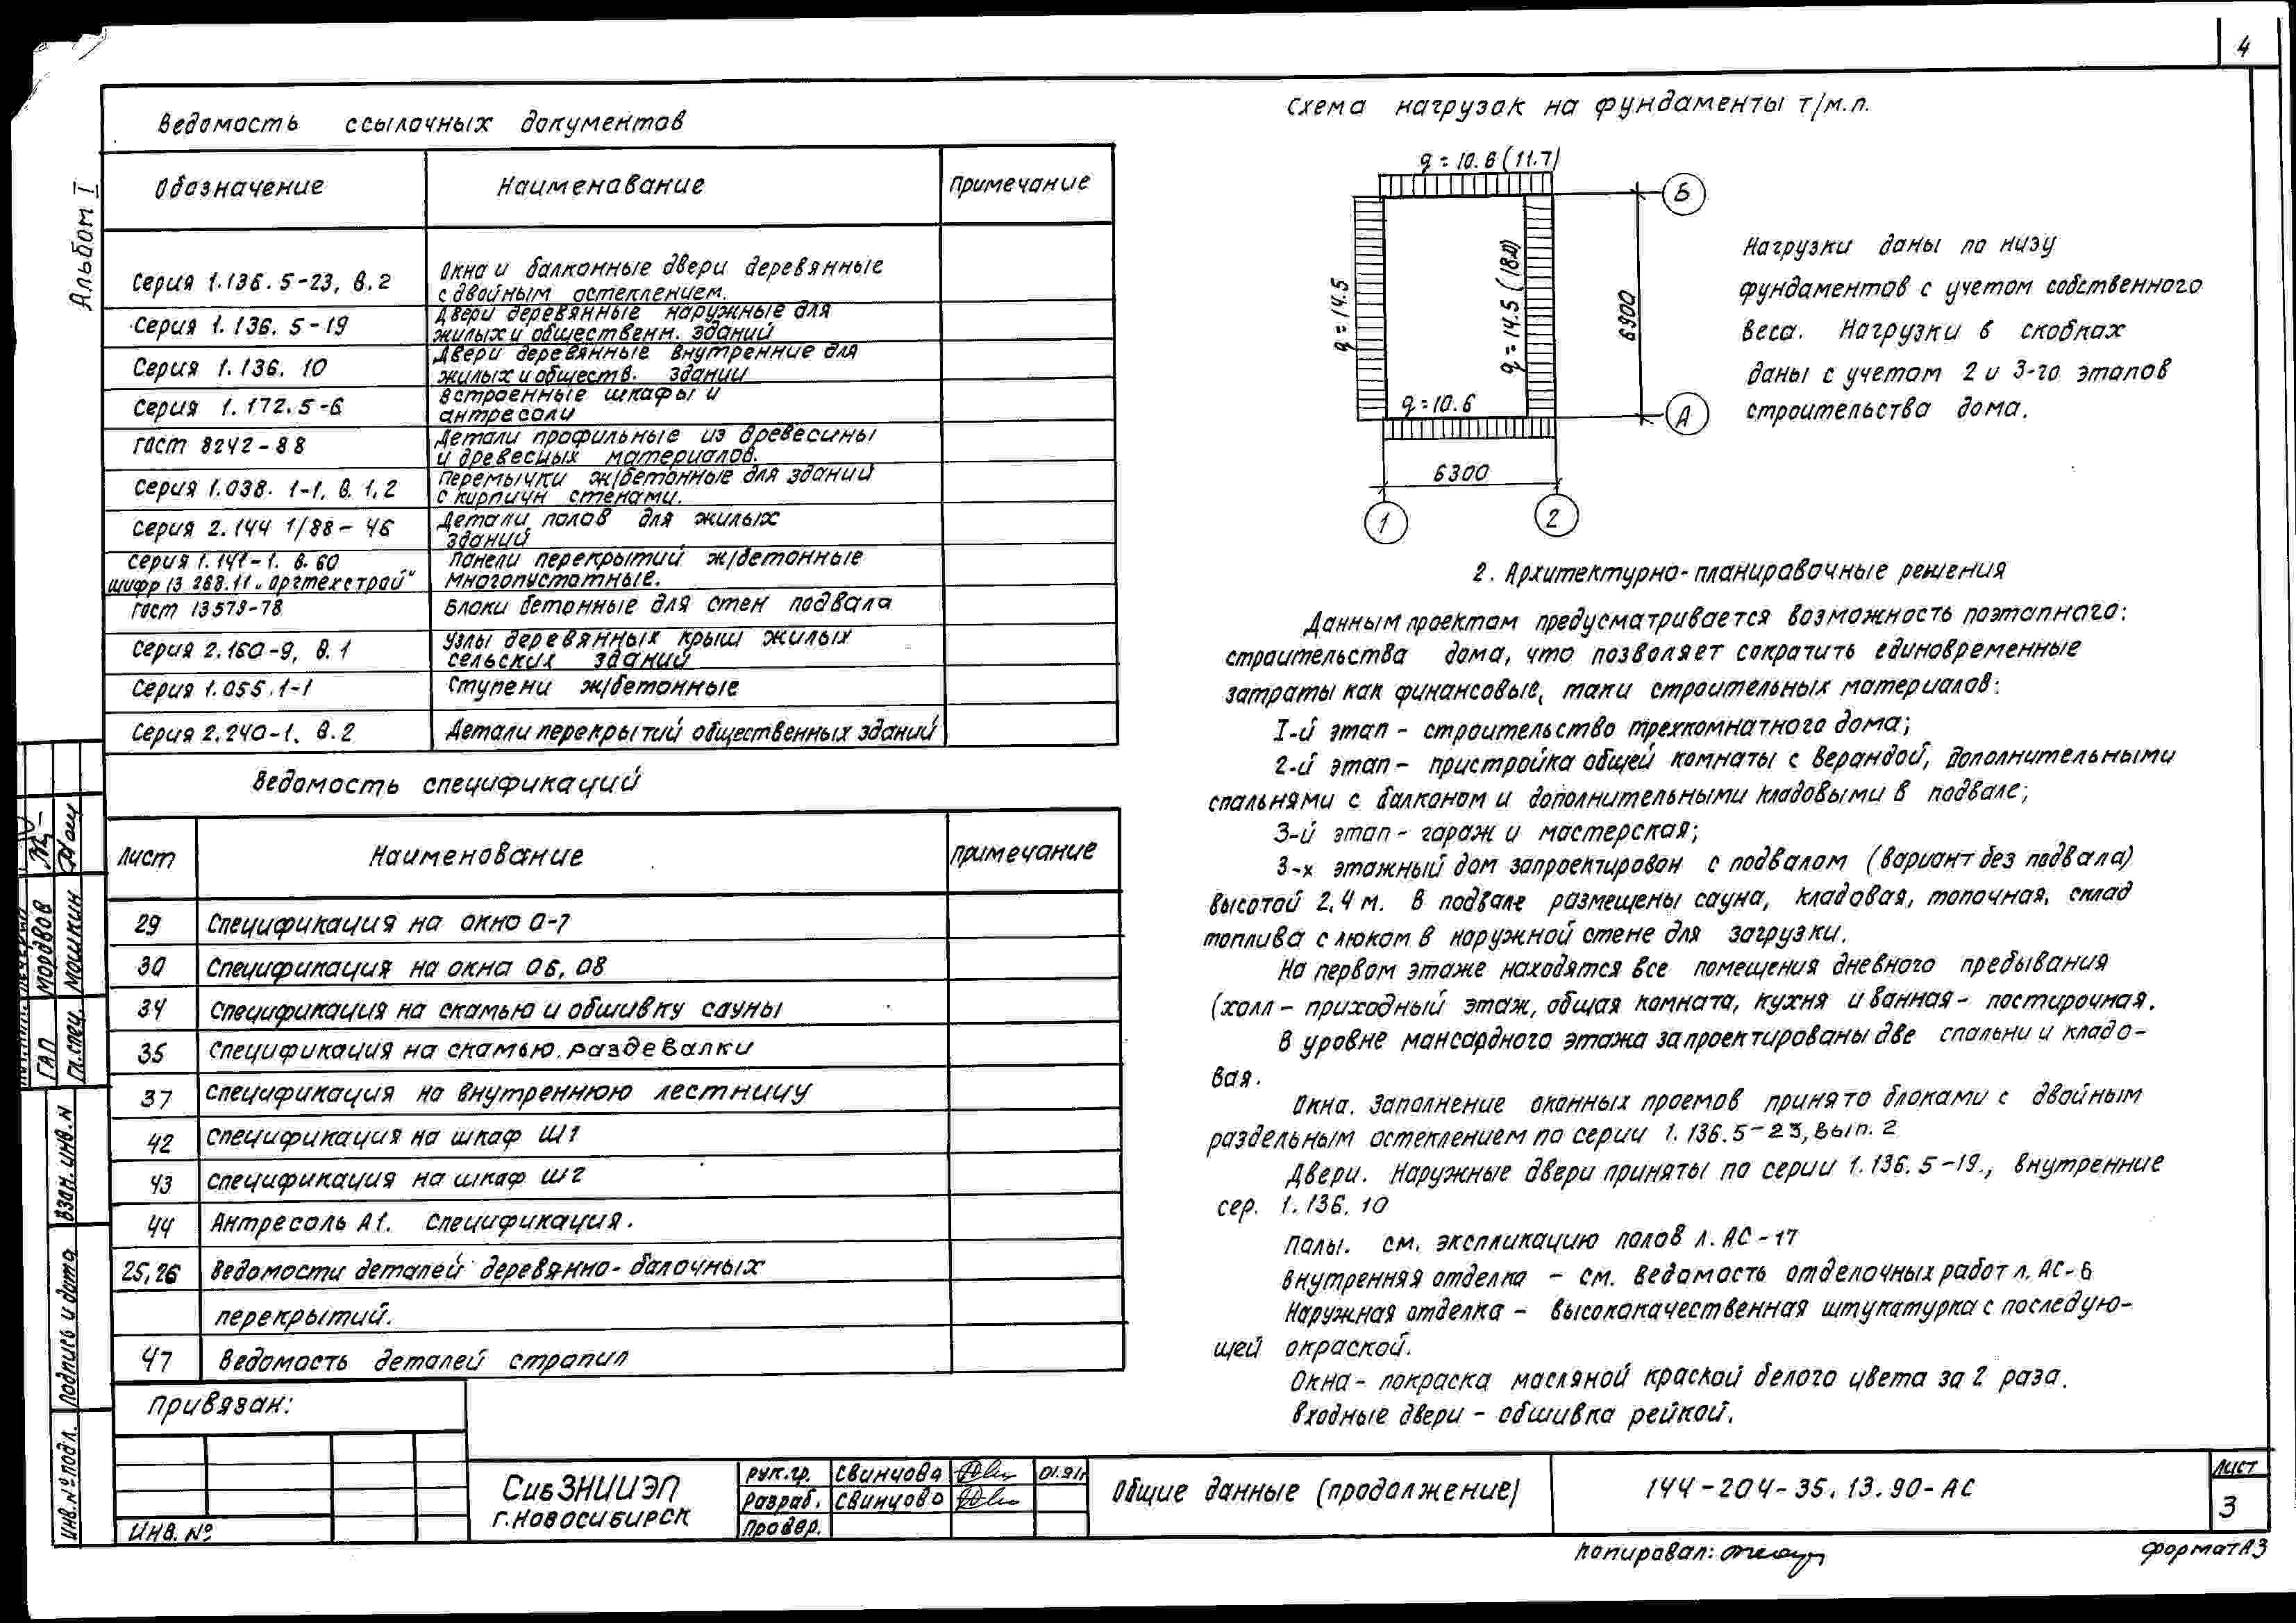 4
Альбом I
Ведомость ссылочных документов
Обозначение Наименавание Примечание
Серия 1.136.5-23, в.2 Окна и балконные двери деревянные
с двойным остеклением.
Серия 1.136.5-19 Двери деревянные наружные для
жилых и общественн. зданий
Серия 1.136.10 Двери деревянные внутренние для
жилых и обществ. зданий
Серия 1.172.5-6 Встроенные шкафы и
антресоли
Гост 8242-88 Детали профильные из древесины
и древесных материалов.
Серия 1.038.1-1, в.1,2 Перемычки ж/бетонные для зданий
с кирпичн стенами.
Серия 2.144 1/88-46 Детали полов для жилых
зданий
Серия 1.141-1. в.60 Панели перекрытий ж/бетонные
шифр 13.268.11 „Оргтехстрой" многопустотные.
Гост 13579-78 Блоки бетонные для стен подвала
Серия 2.160-9, в.1 Узлы деревянных крыш жилых
сельских зданий
Серия 1.055.1-1 Ступени ж/бетонные
Серия 2.240-1. в.2 Детали перекрытий общественных зданий
Ведомость спецификаций
Лист Наименование Примечание
29 Спецификация на окно О-7
30 Спецификация на окна О6, О8
34 Спецификация на скамью и обшивку сауны
35 Спецификация на скамью раздевалки
37 Спецификация на внутреннюю лестницу
42 Спецификация на шкаф Ш1
43 Спецификация на шкаф Ш2
44 Антресоль А1. Спецификация.
25,26 Ведомости деталей деревянно-балочных
перекрытий.
47 Ведомость деталей стропил
Схема нагрузок на фундаменты т/м.п.
q = 10.6 (11.7)
q = 14.5
q = 14.5 (18.0)
q = 10.6
6900
6300
Б
А
1
2
Нагрузки даны по низу
фундаментов с учетом собственного
веса. Нагрузки в скобках
даны с учетом 2 и 3-го этапов
строительства дома.
2. Архитектурно-планировочные решения
Данным проектом предусматривается возможность поэтапного
строительства дома, что позволяет сократить единовременные
затраты как финансовые, таки строительных материалов:
I-й этап - строительство трехкомнатного дома;
2-й этап - пристройка общей комнаты с верандой, дополнительными
спальнями с балконом и дополнительными кладовыми в подвале;
3-й этап - гараж и мастерская;
3-х этажный дом запроектирован с подвалом (вариант без подвала)
высотой 2,4 м. В подвале размещены сауна, кладовая, топочная, склад
топлива с люком в наружной стене для загрузки.
На первом этаже находятся все помещения дневного пребывания
(холл - приходный этаж, общая комната, кухня и ванная - постирочная.
В уровне мансардного этажа запроектированы две спальни и кладо-
вая.
Окна. Заполнение оконных проемов принято блоками с двойным
раздельным остеклением по серии 1.136.5-23, вып. 2
Двери. Наружные двери приняты по серии 1.136.5-19., внутренние
сер. 1.136.10
Полы. см. экспликацию полов л. АС-17
Внутренняя отделка - см. Ведомость отделочных работ л. АС-6
Наружная отделка - высококачественная штукатурка с последую-
щей окраской.
Окна - покраска масляной краской белого цвета за 2 раза.
Входные двери - обшивка рейкой.
ГАП Мордвов
Гл.спец. Мошкин
Взам. инв. N
Подпись и дата
Инв. № подл.
Привязан:
Инв. №
СибЗНИИЭП
г. Новосибирск
Рук.гр. Свинцова 01.91г
Разраб. Свинцова
Провер.
Общие данные (продолжение)
144-204-35.13.90-АС
Лист
3
Копировал:
Формат А3